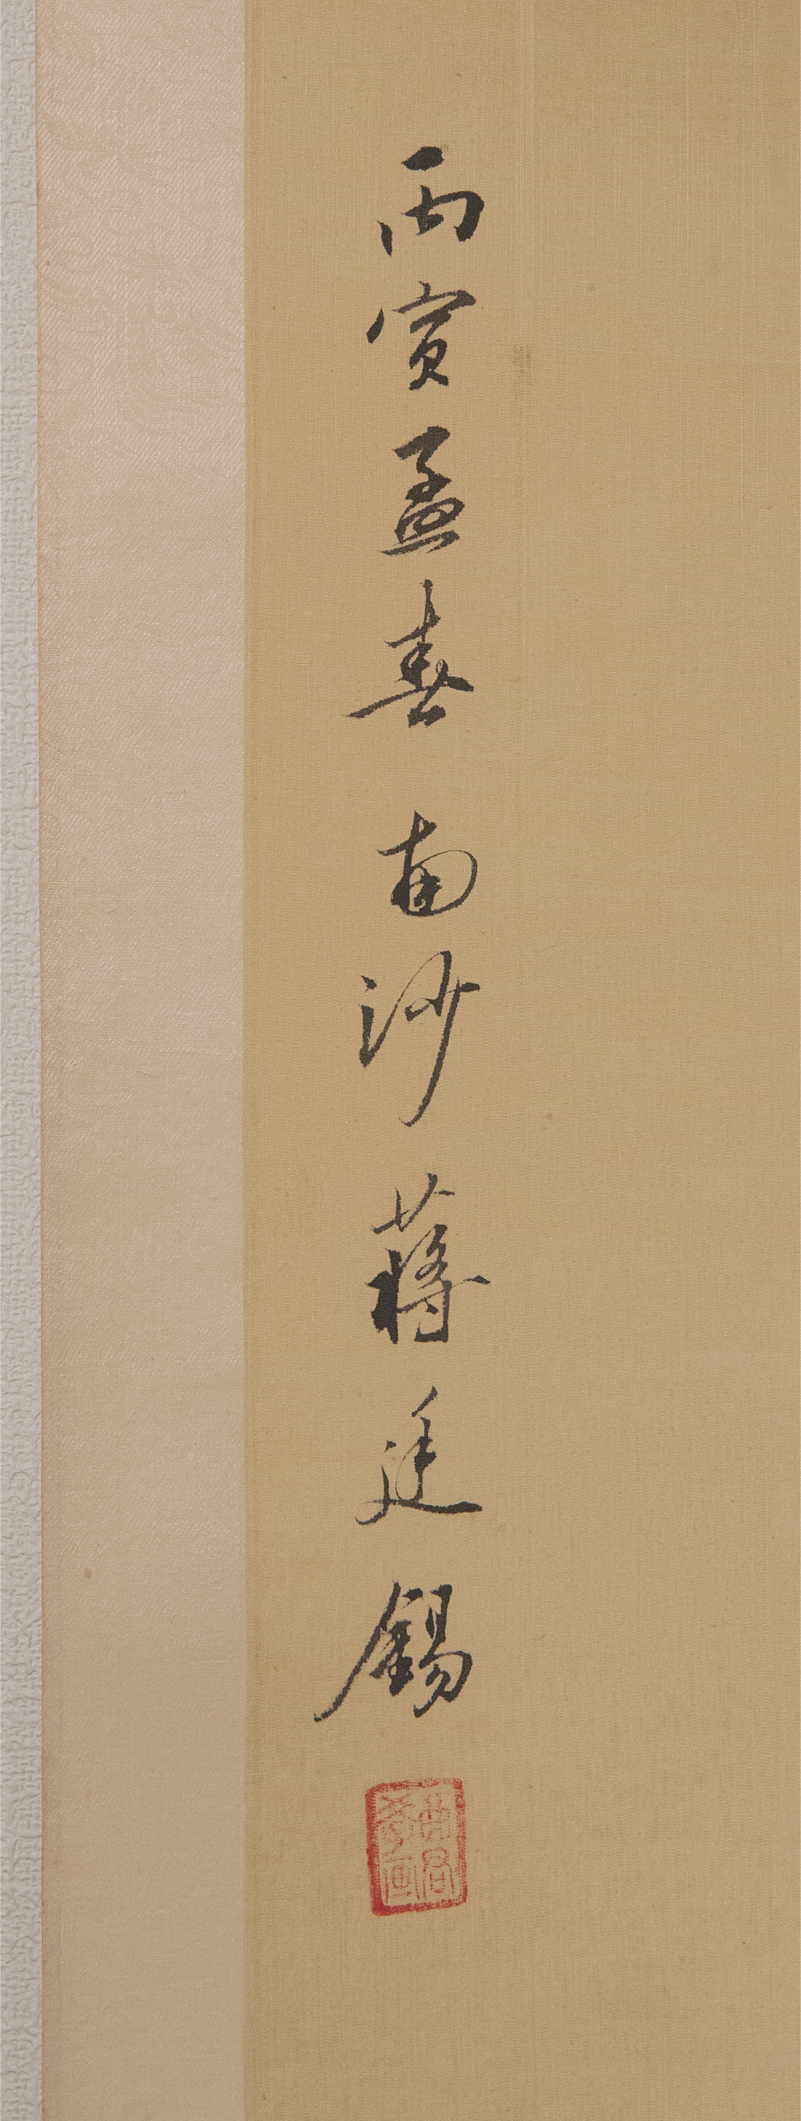 丙寅孟春 南沙 蔣廷錫